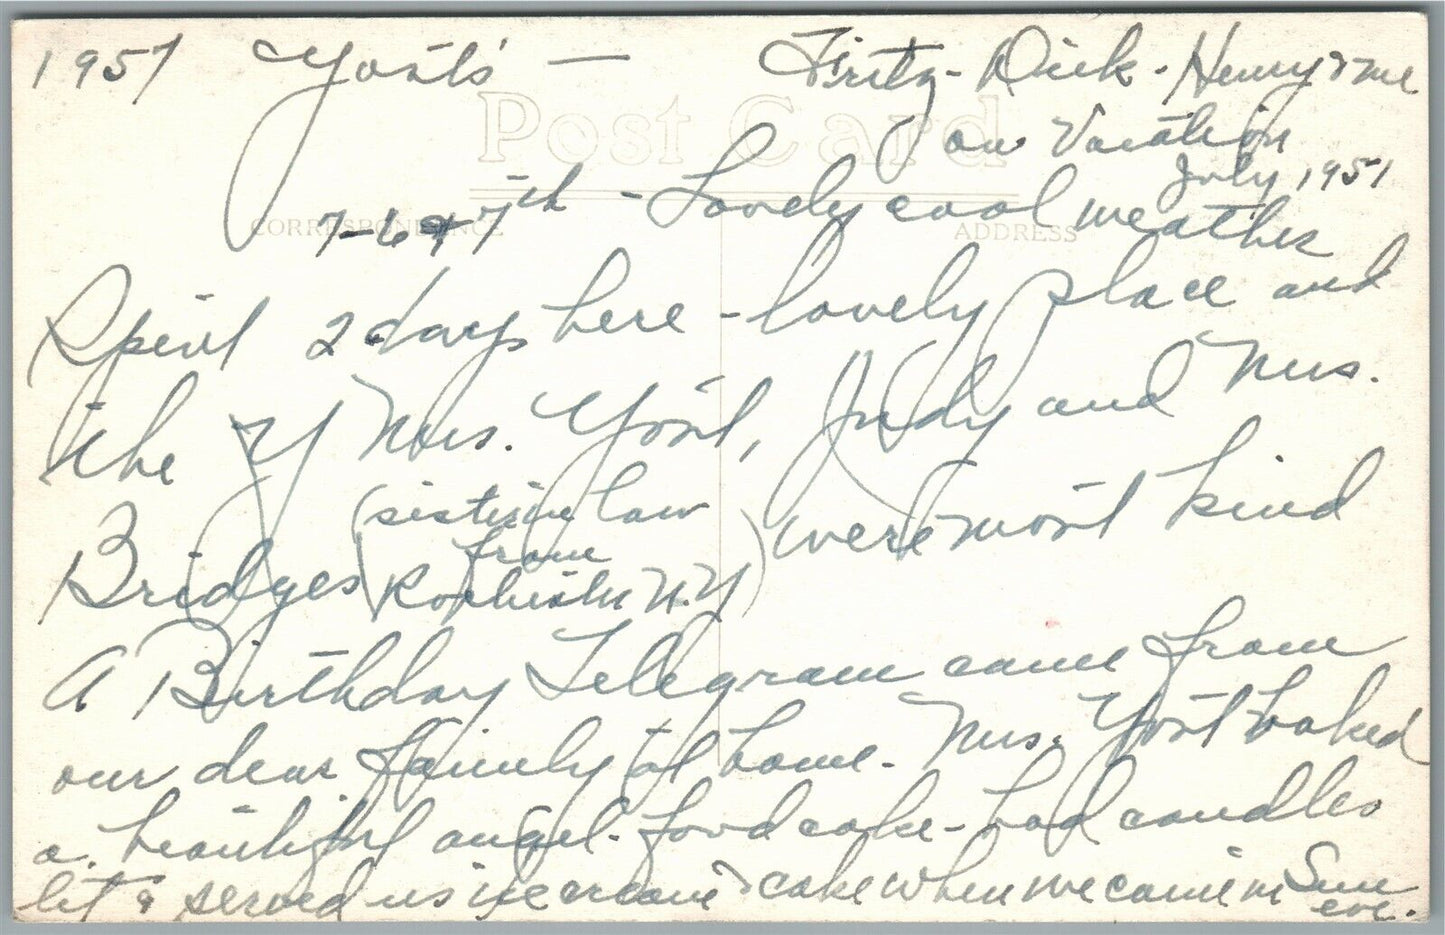 1951 Yost's — Fritz - Dick - Henry & me
Post Card
on Vacation
July 1951
7-6 & 7th - Lovely cool weather
CORRESPONDENCE ADDRESS
Spent 2 days here - lovely place and
the Mrs. Yost, Judy and Mrs.
Bridges (sister in law
from
Rochester N.Y) were most kind
A Birthday Telegram came from
our dear family at home. Mrs. Yost baked
a beautiful angel-food cake - had candles
lit & served us ice cream & cake when we came in Sun
eve.